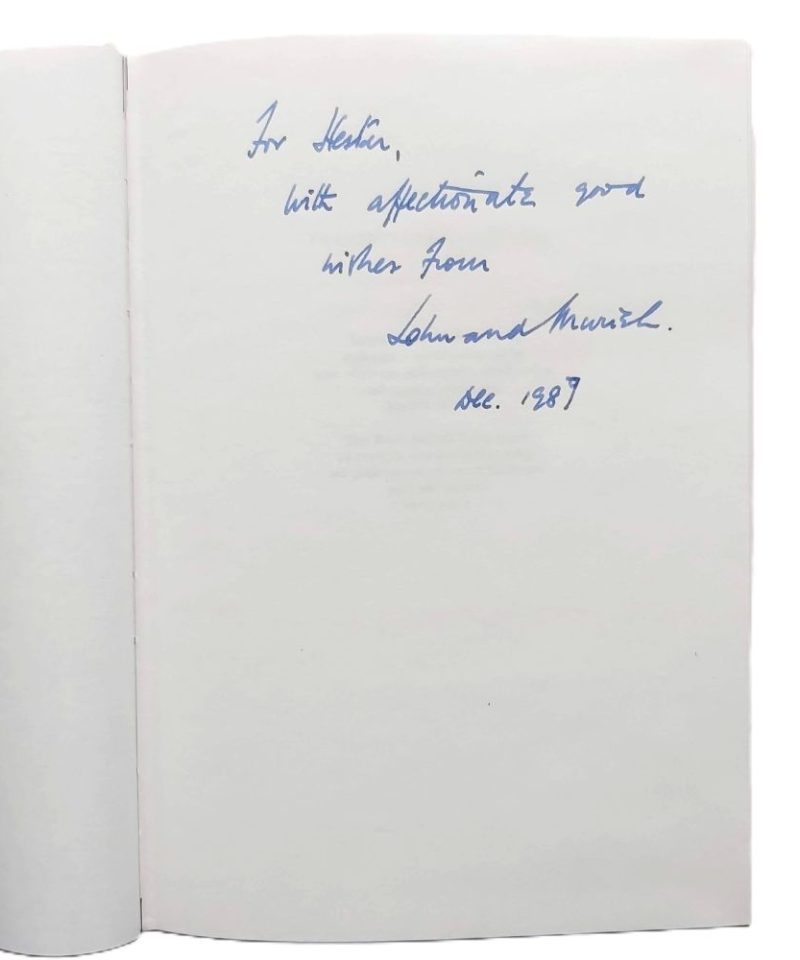 For Hester,
with affectionate good
wishes from
John and Muriel.
Dec. 1989